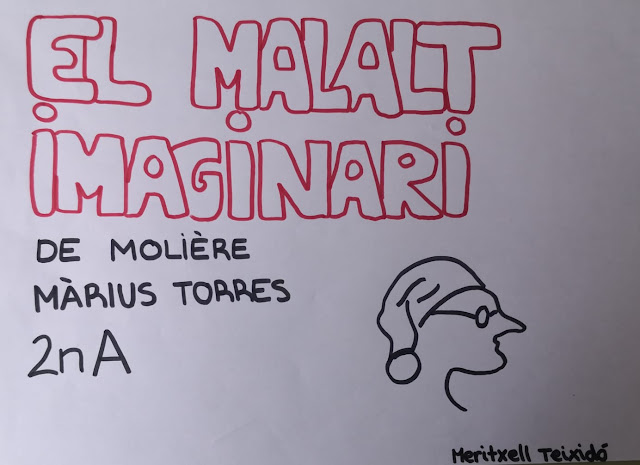 EL MALALT
iMAGiNARi
DE MOLiÈRE
MÀRIUS TORRES
2nA
Meritxell Teixidó